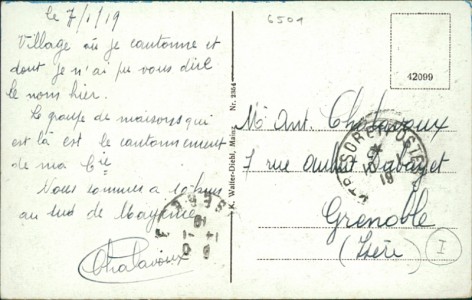 le 7/1/19
Village où je cantonne et
dont je n'ai pu vous dire
le nom hier.
Le groupe de maisons qui
est là est le cantonnement
de ma Cie
Nous sommes à 10 kms
au sud de Mayence
Chatavoux
K. Walter-Diehl, Mainz Nr. 2354
6501
42099
Mr Ant. Chatavoux
7 rue
Grenoble
(Isère)
I
TRESOR ET POSTES
19